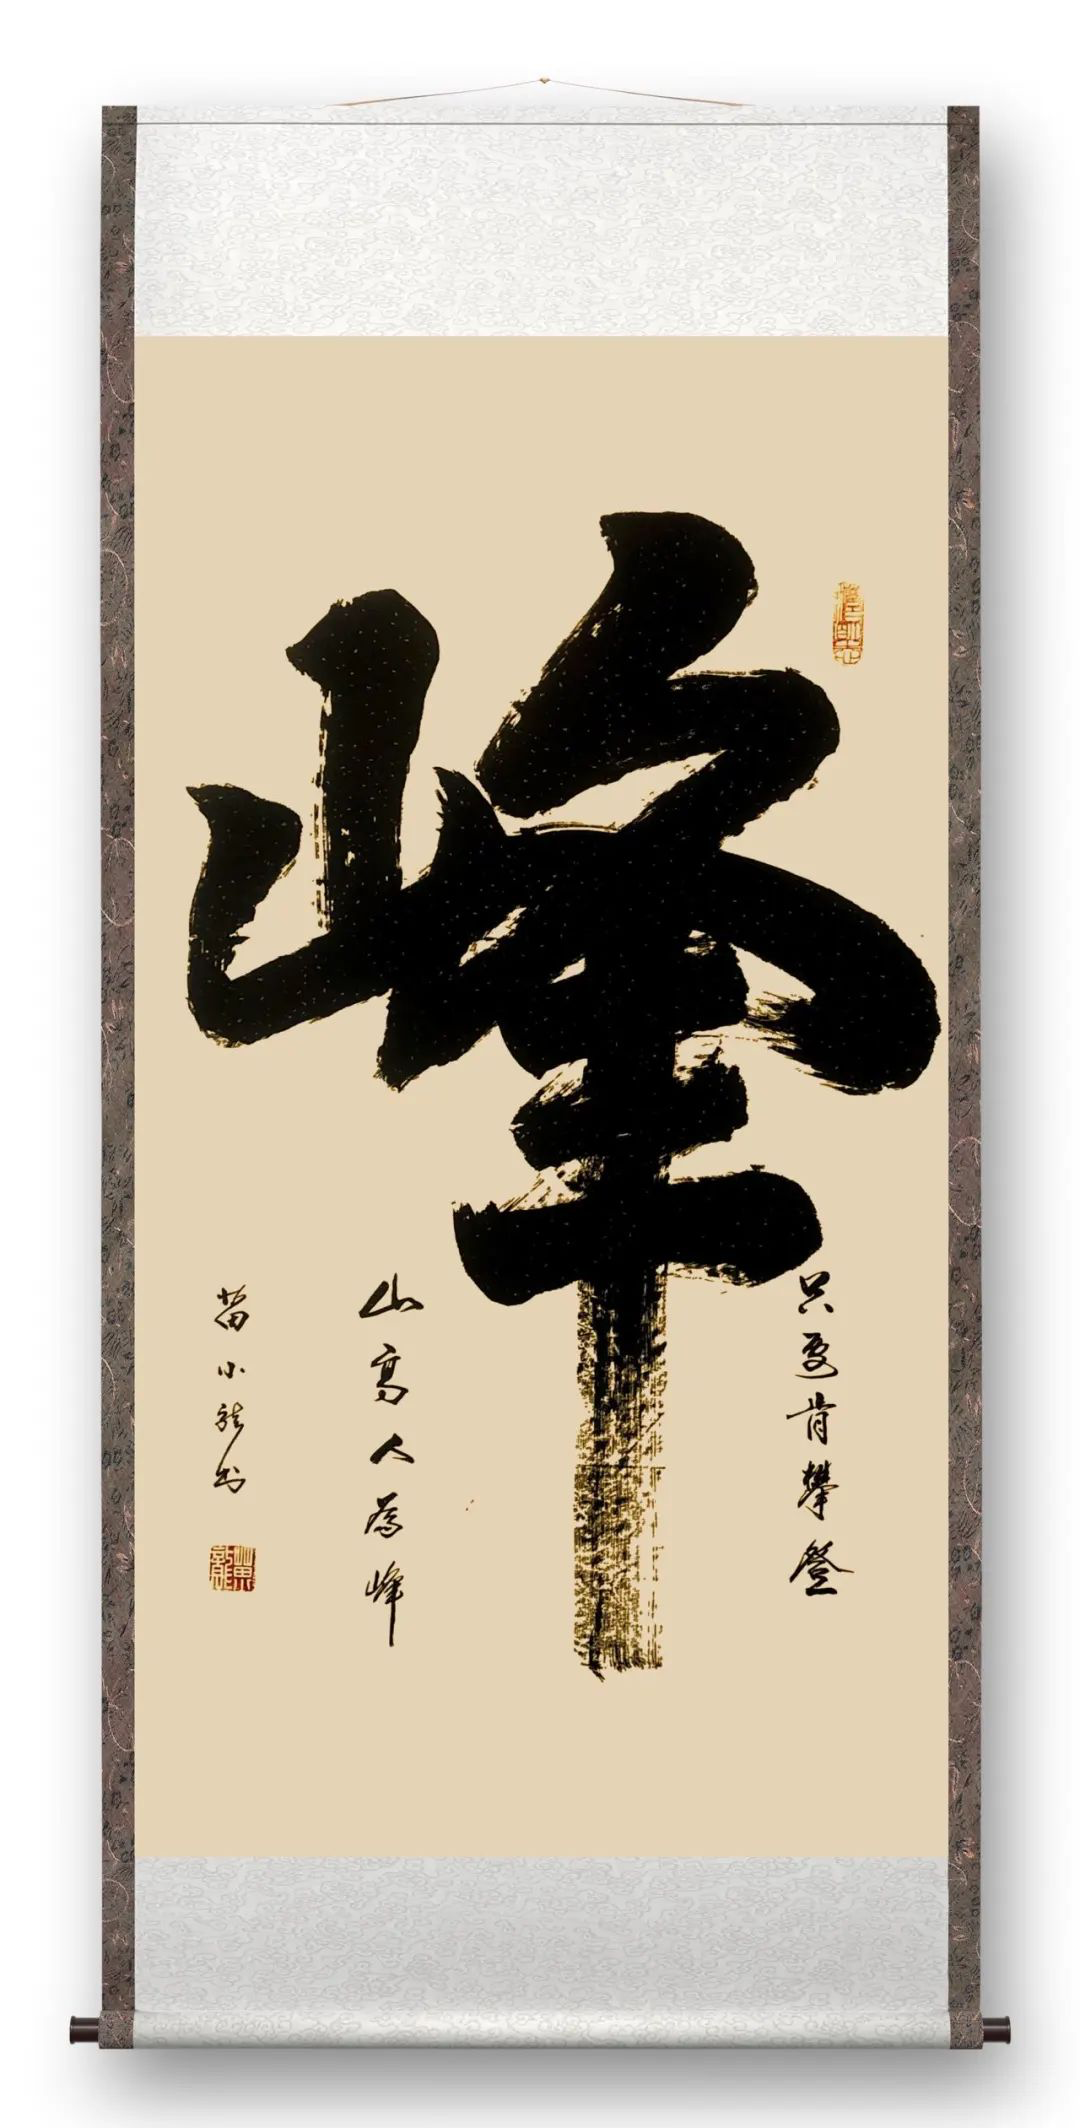 峰
只要肯攀登
山高人為峰
苗小龙书